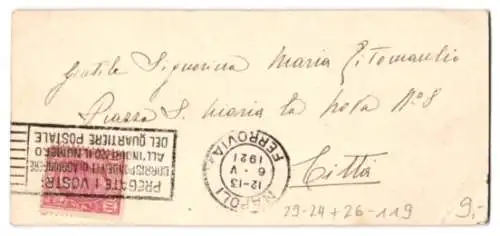 Gentile Signorina Maria Pitomaulio
Piazza S. Maria la Nova Nº 8
Città
NAPOLI
FERROVIA
12-13
6·V
1921
PREGATE I VOSTRI
CORRISPONDENTI DI AGGIUNGERE
ALL'INDIRIZZO IL NUMERO
DEL QUARTIERE POSTALE
29-24+26-119
9,-